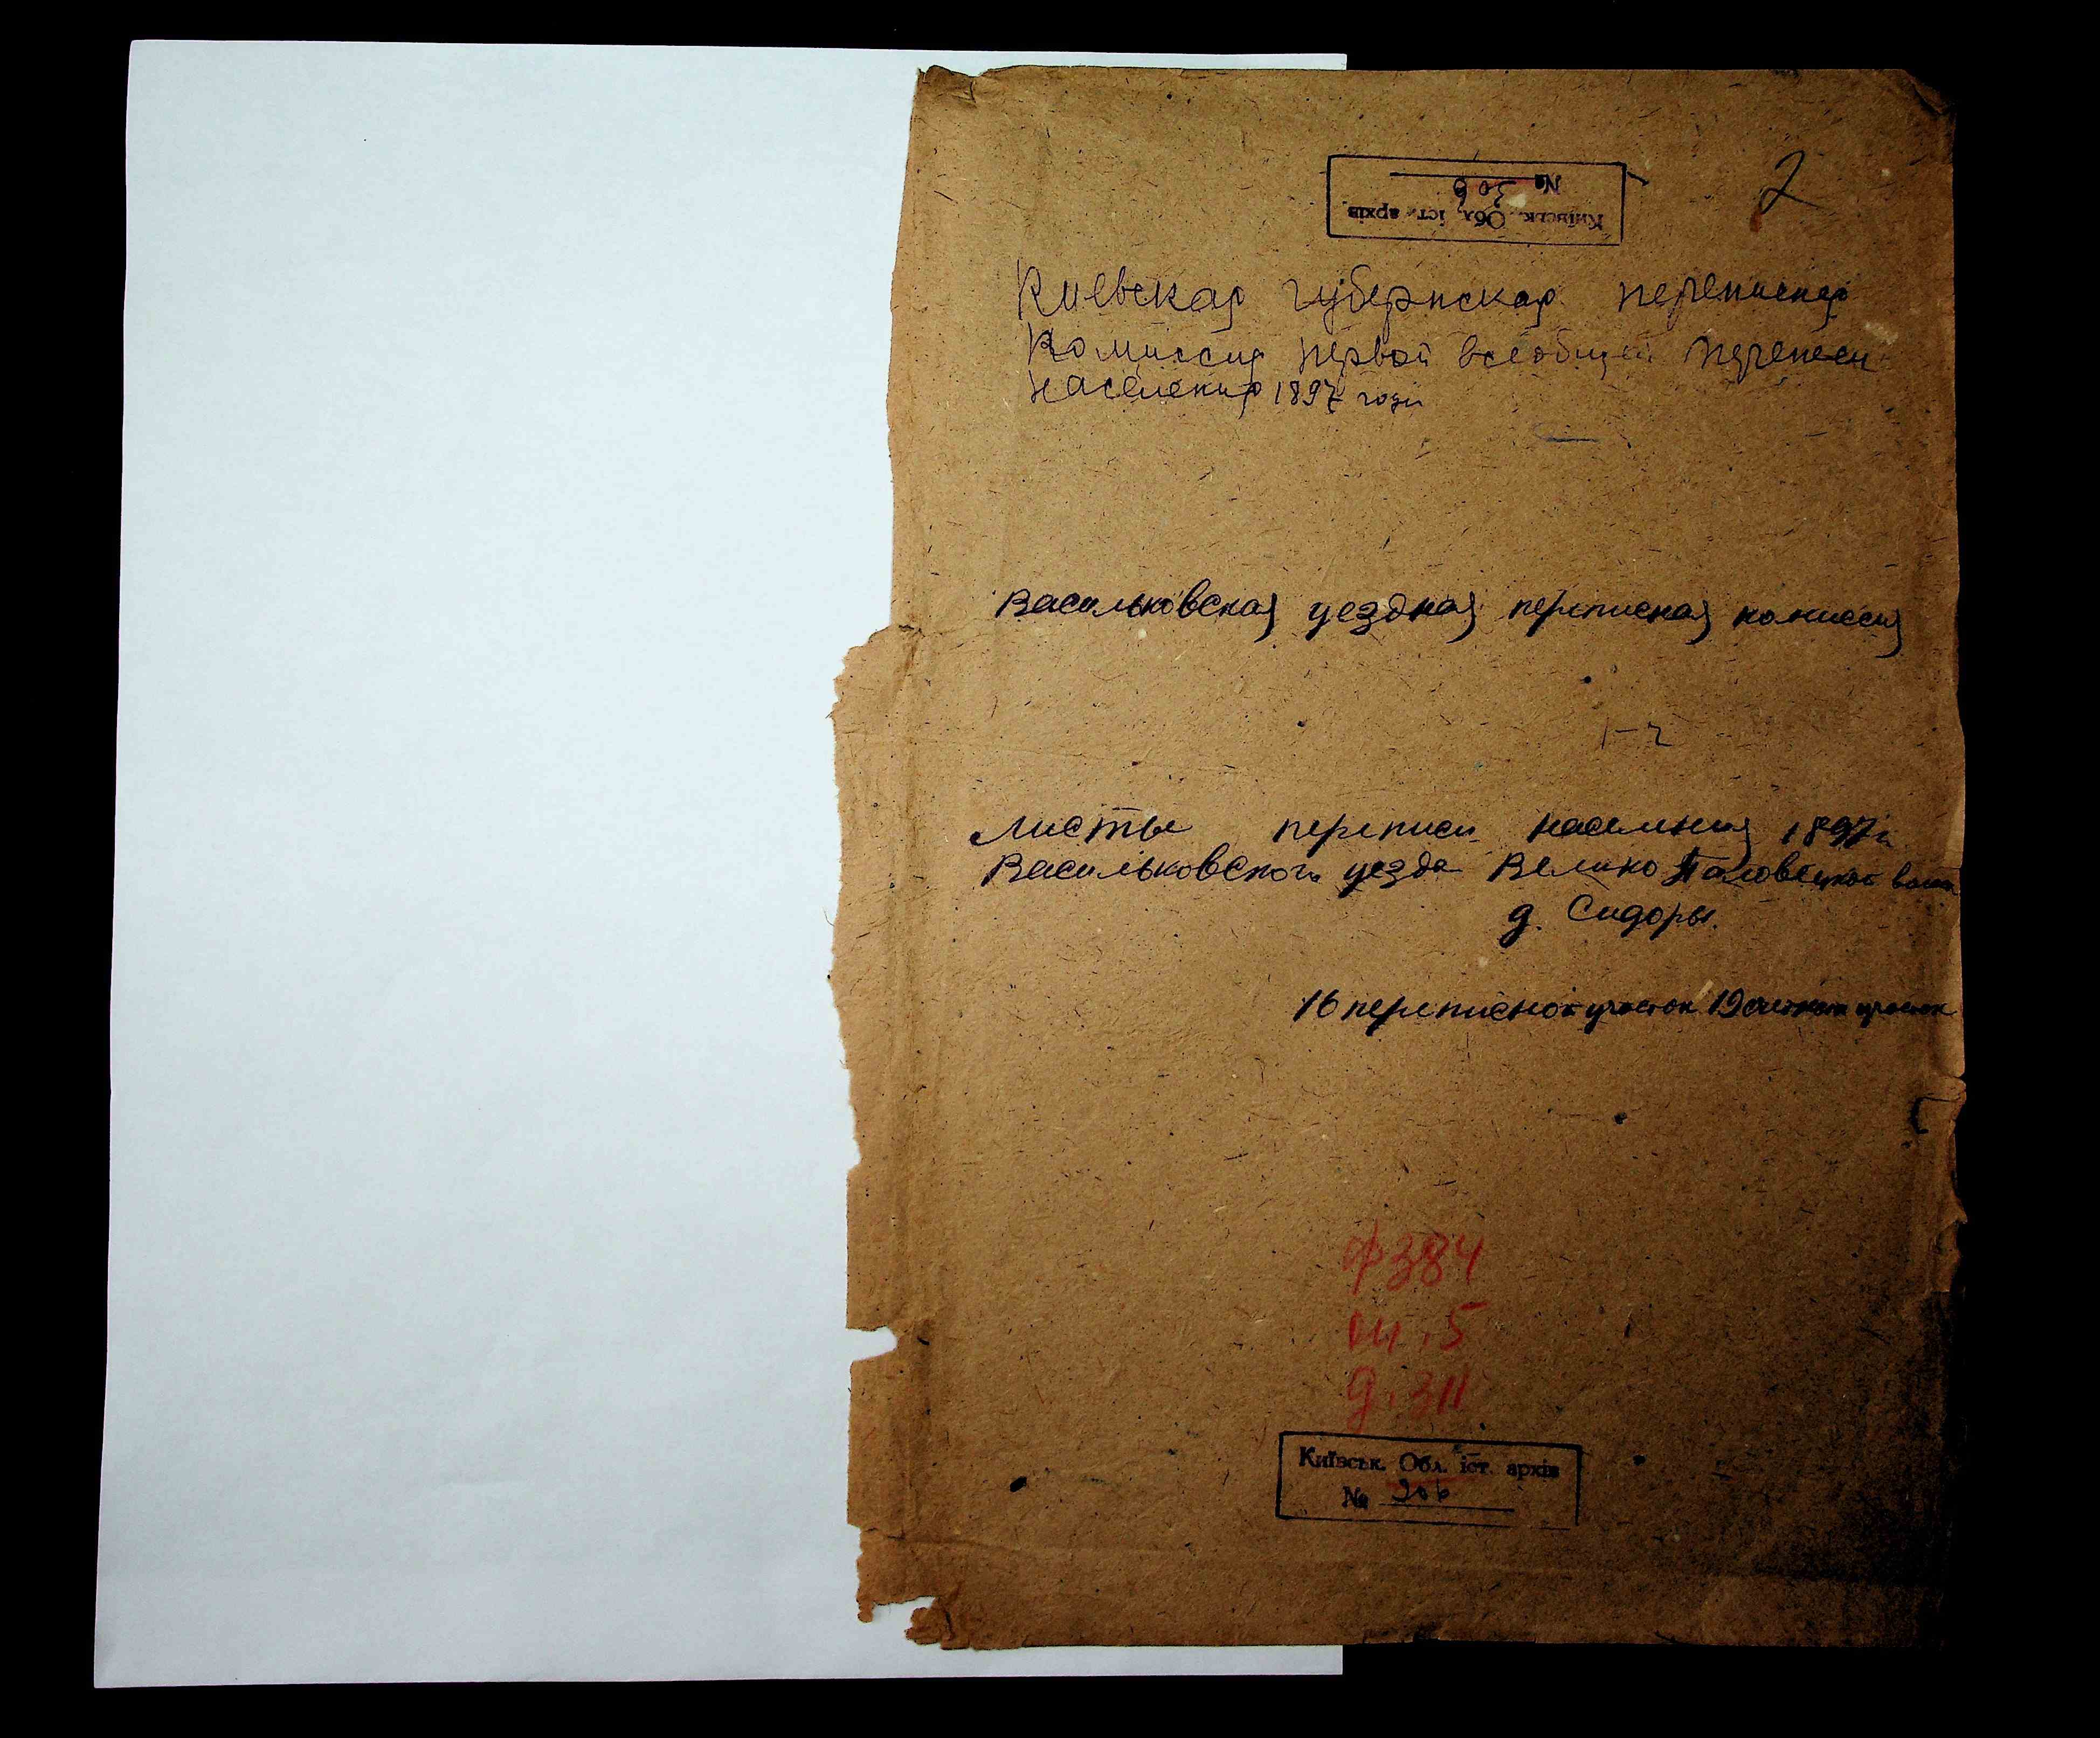 2
Київськ. Обл. іст. архів
№ 306
Киевская губернская переписная
Комиссия первой всеобщей переписи
населения 1897 года
Васильковская уездная переписная комиссия
1-2
Листы переписи населения 1897г.
Васильковского уезда Велико Половецкой волос
д. Сидоры.
16 переписной участок 19 счетный участок
ф 384
оп. 5
д. 311
Київськ. Обл. іст. архів
№ 306